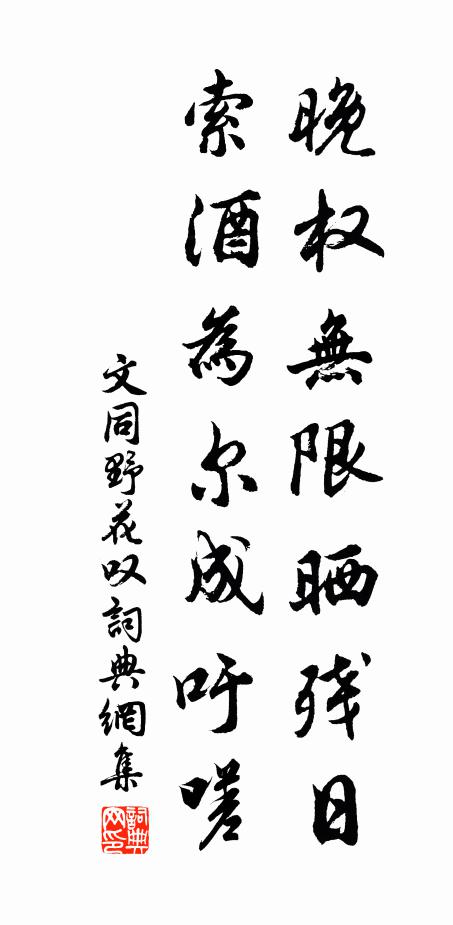 晚杈無限晒残日
索酒為尔成吁嗟
文同野花叹詞典網集
詞典网印